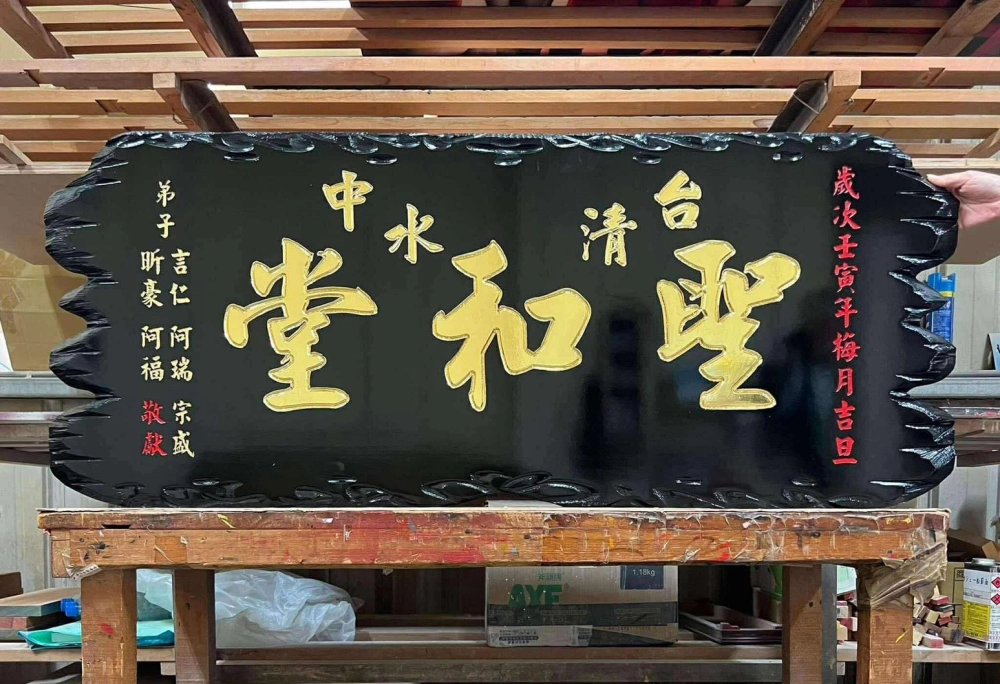 歲次壬寅年梅月吉旦
台中
清水
聖和堂
弟子
言仁 阿瑞 宗盛
昕豪 阿福 敬獻
1.18kg